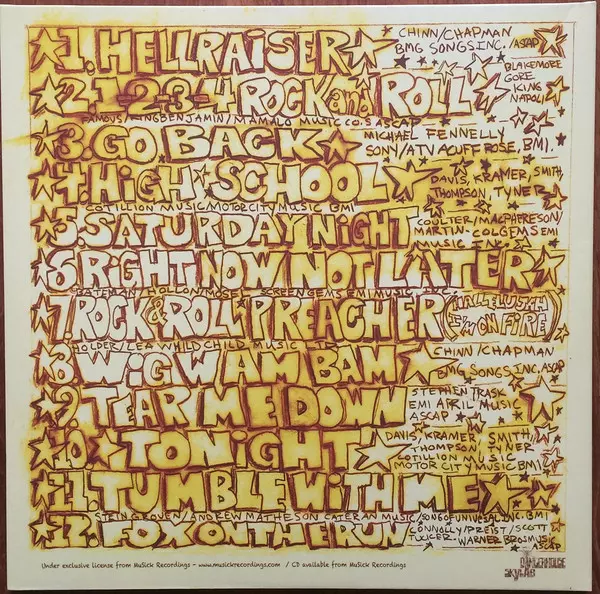 1. HELLRAISER
CHINN/CHAPMAN
BMG SONGS INC. /ASCAP
2. 1-2-3-4 ROCK and ROLL
BLAKEMORE
GORE
KING
NAPOLI
FAMOUS/KINGBENJAMIN/MAMALO MUSIC CO.S ASCAP
3. GO BACK
MICHAEL FENNELLY
SONY/ATV ACUFF ROSE, BMI.
4. HIGH SCHOOL
DAVIS, KRAMER, SMITH,
THOMPSON, TYNER
COTILLION MUSIC/MOTOR CITY MUSIC BMI
5. SATURDAY NIGHT
COULTER/MACPHERESON/
MARTIN-COLGEMS EMI
MUSIC INC.
6. RIGHT NOW NOT LATER
BATEMAN/HOLLON/MOSE SCREEN GEMS EMI MUSIC INC.
7. ROCK & ROLL PREACHER (HALLELUJAH
I'M ON FIRE)
HOLDER/LEA WHILD CHILD MUSIC LTD
8. WIGWAM BAM
CHINN/CHAPMAN
BMG SONGS INC. ASCAP
9. TEAR ME DOWN
STEPHEN TRASK
EMI APRIL MUSIC
ASCAP
10. TONIGHT
DAVIS, KRAMER, SMITH,
THOMPSON, TYNER
COTILLION MUSIC
MOTOR CITY MUSIC BMI
11. TUMBLE WITH ME
ANDREW MATHESON CATERAN MUSIC/SONGS OF UNIVERSAL INC. BMI
12. FOX ON THE RUN
CONNOLLY/PREIST/SCOTT
TUCKER. WARNER BROS MUSIC
ASCAP
Under exclusive license from MuSick Recordings - www.musickrecordings.com / CD available from MuSick Recordings